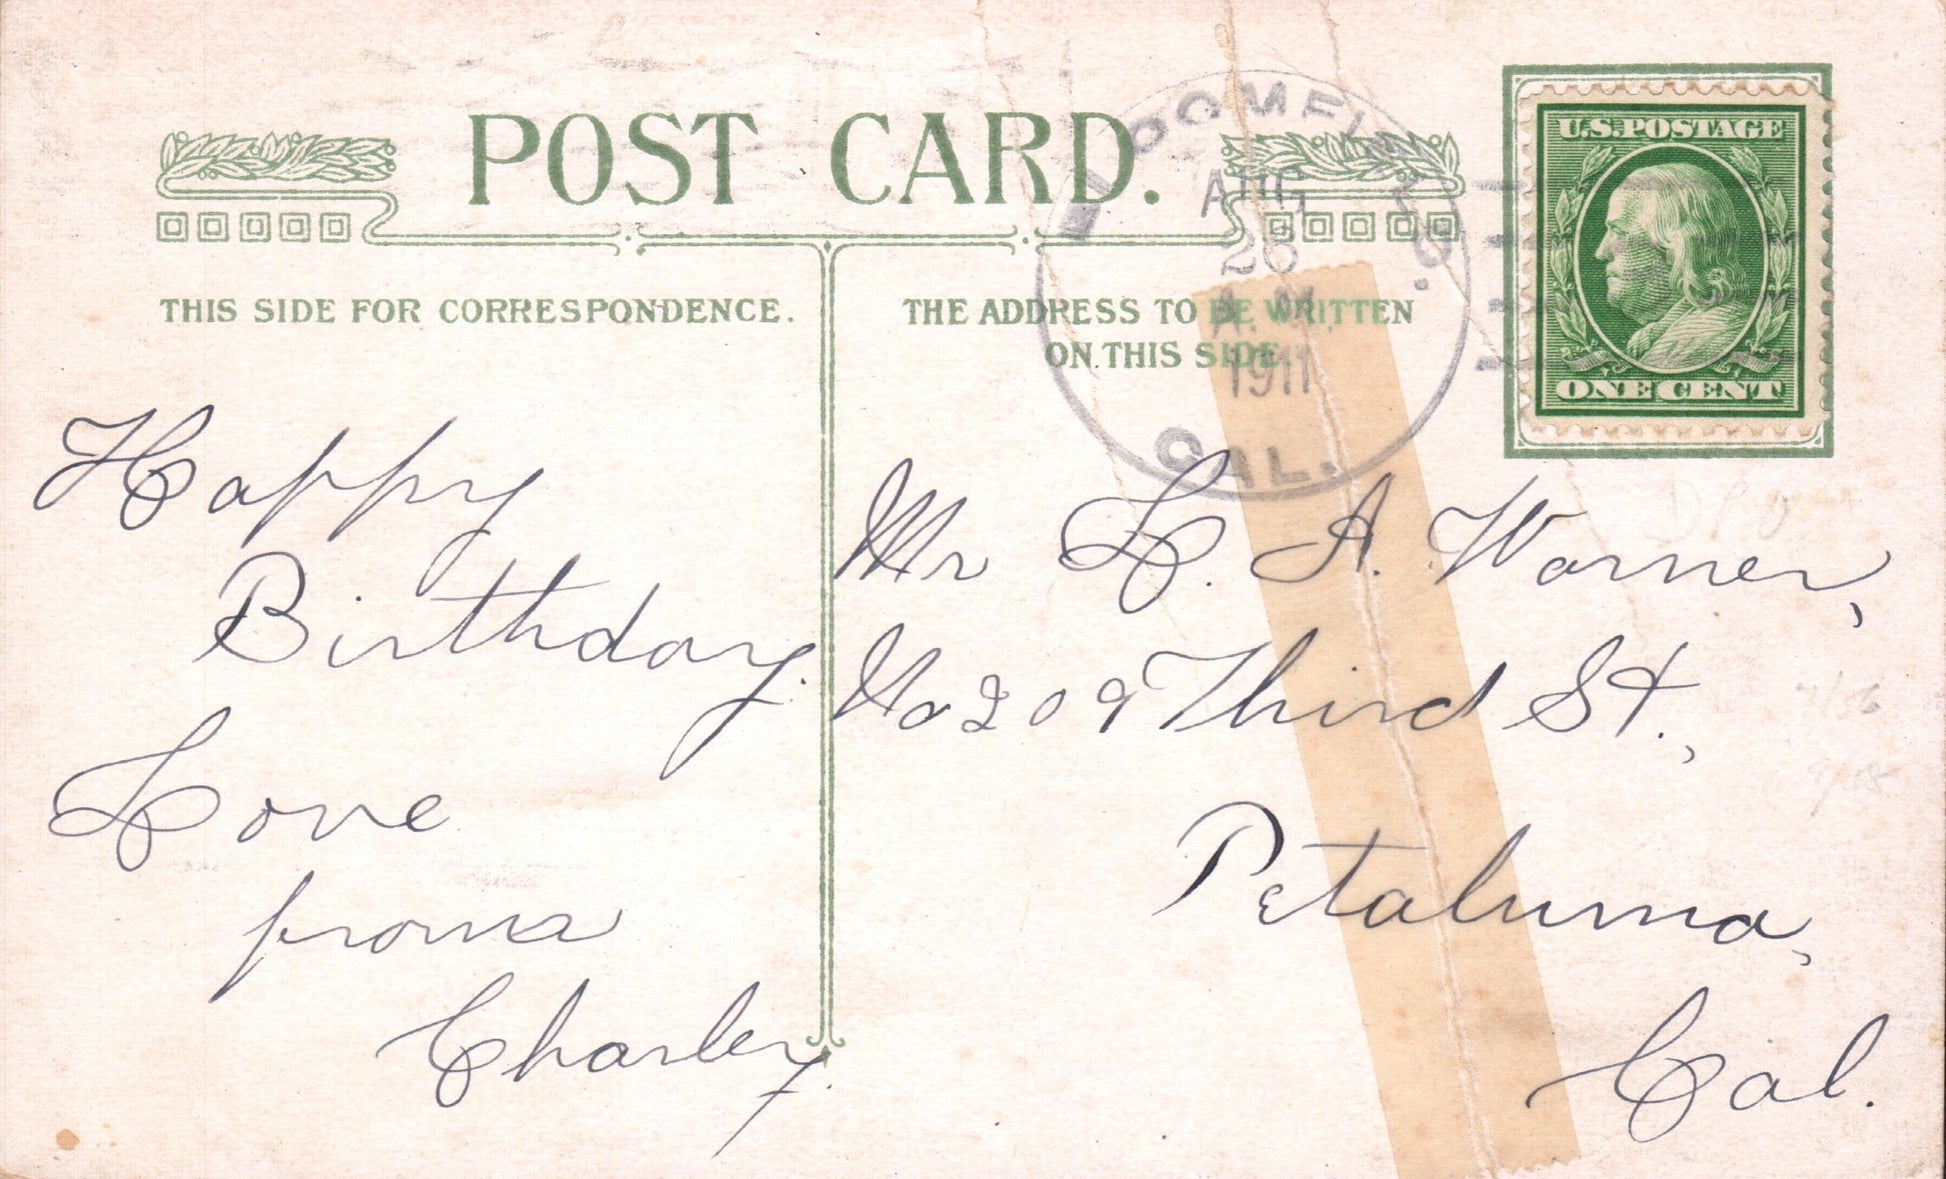 POST CARD.
BLOOMFIELD.
AUG
26
A.M.
1911
CAL.
U.S. POSTAGE
ONE CENT
THIS SIDE FOR CORRESPONDENCE.
THE ADDRESS TO BE WRITTEN
ON THIS SIDE
Happy
Birthday.
Love
from
Charley.
Mr L. A. Warner,
No 209 Third St.,
Petaluma,
Cal.
DPO